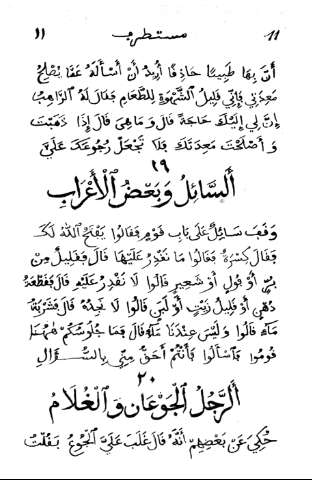 ١١ مستطرب 11
أَنَّ بِهَا طَبِيبًا حَاذِقًا أُرِيدُ أَنْ أَسْأَلَهُ عَمَّا يُصْلِحُ
مَعِدَتِي فَإِنِّي قَلِيلُ الشَّهْوَةِ لِلطَّعَامِ فَقَالَ لَهُ الرَّاهِبُ
إِنَّ لِي إِلَيْكَ حَاجَةً قَالَ وَمَا هِيَ قَالَ إِذَا ذَهَبْتَ
وَأَصْلَحْتَ مَعِدَتَكَ فَلَا تَجْعَلْ رُجُوعَكَ عَلَيَّ
١٩
أَلسَّائِلُ وَبَعْضُ الْأَعْرَابِ
وَقَفَ سَائِلٌ عَلَى بَابِ قَوْمٍ فَقَالُوا يَفْتَحُ اللّٰهُ لَكَ
فَقَالَ كِسْرَةٌ فَقَالُوا مَا نَقْدِرُ عَلَيْهَا قَالَ فَقَلِيلٌ مِنْ
بُرٍّ أَوْ فُولٍ أَوْ شَعِيرٍ قَالُوا لَا نَقْدِرُ عَلَيْهِ قَالَ فَقِطْعَةُ
دُهْنٍ أَوْ قَلِيلُ زَيْتٍ أَوْ لَبَنٍ قَالُوا لَا نَجِدُهُ قَالَ فَشَرْبَةُ
مَاءٍ قَالُوا وَلَيْسَ عِنْدَنَا مَاءٌ قَالَ فَمَا جُلُوسُكُمْ هٰهُنَا
قُومُوا فَاسْأَلُوا فَأَنْتُمْ أَحَقُّ مِنِّي بِالسُّؤَالِ
٢٠
أَلرَّجُلُ الْجَوْعَانُ وَالْغُلَامُ
حُكِيَ عَنْ بَعْضِهِمْ أَنَّهُ قَالَ غَلَبَ عَلَيَّ الْجُوعُ فَقُلْتُ